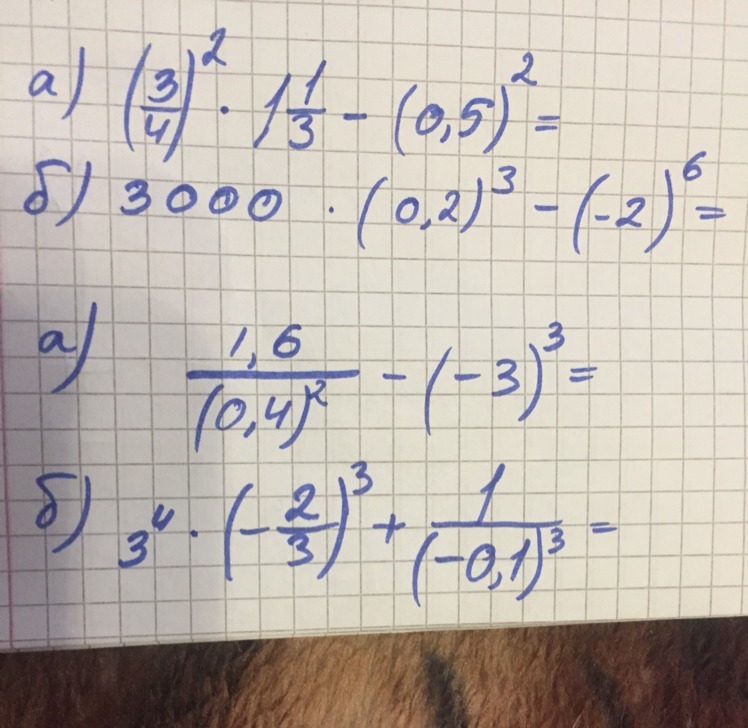 а) (3/4)² · 1 1/3 − (0,5)² =
б) 3000 · (0,2)³ − (−2)⁶ =
а) 1,6/(0,4)² − (−3)³ =
б) 3⁴ · (−2/3)³ + 1/(−0,1)³ =